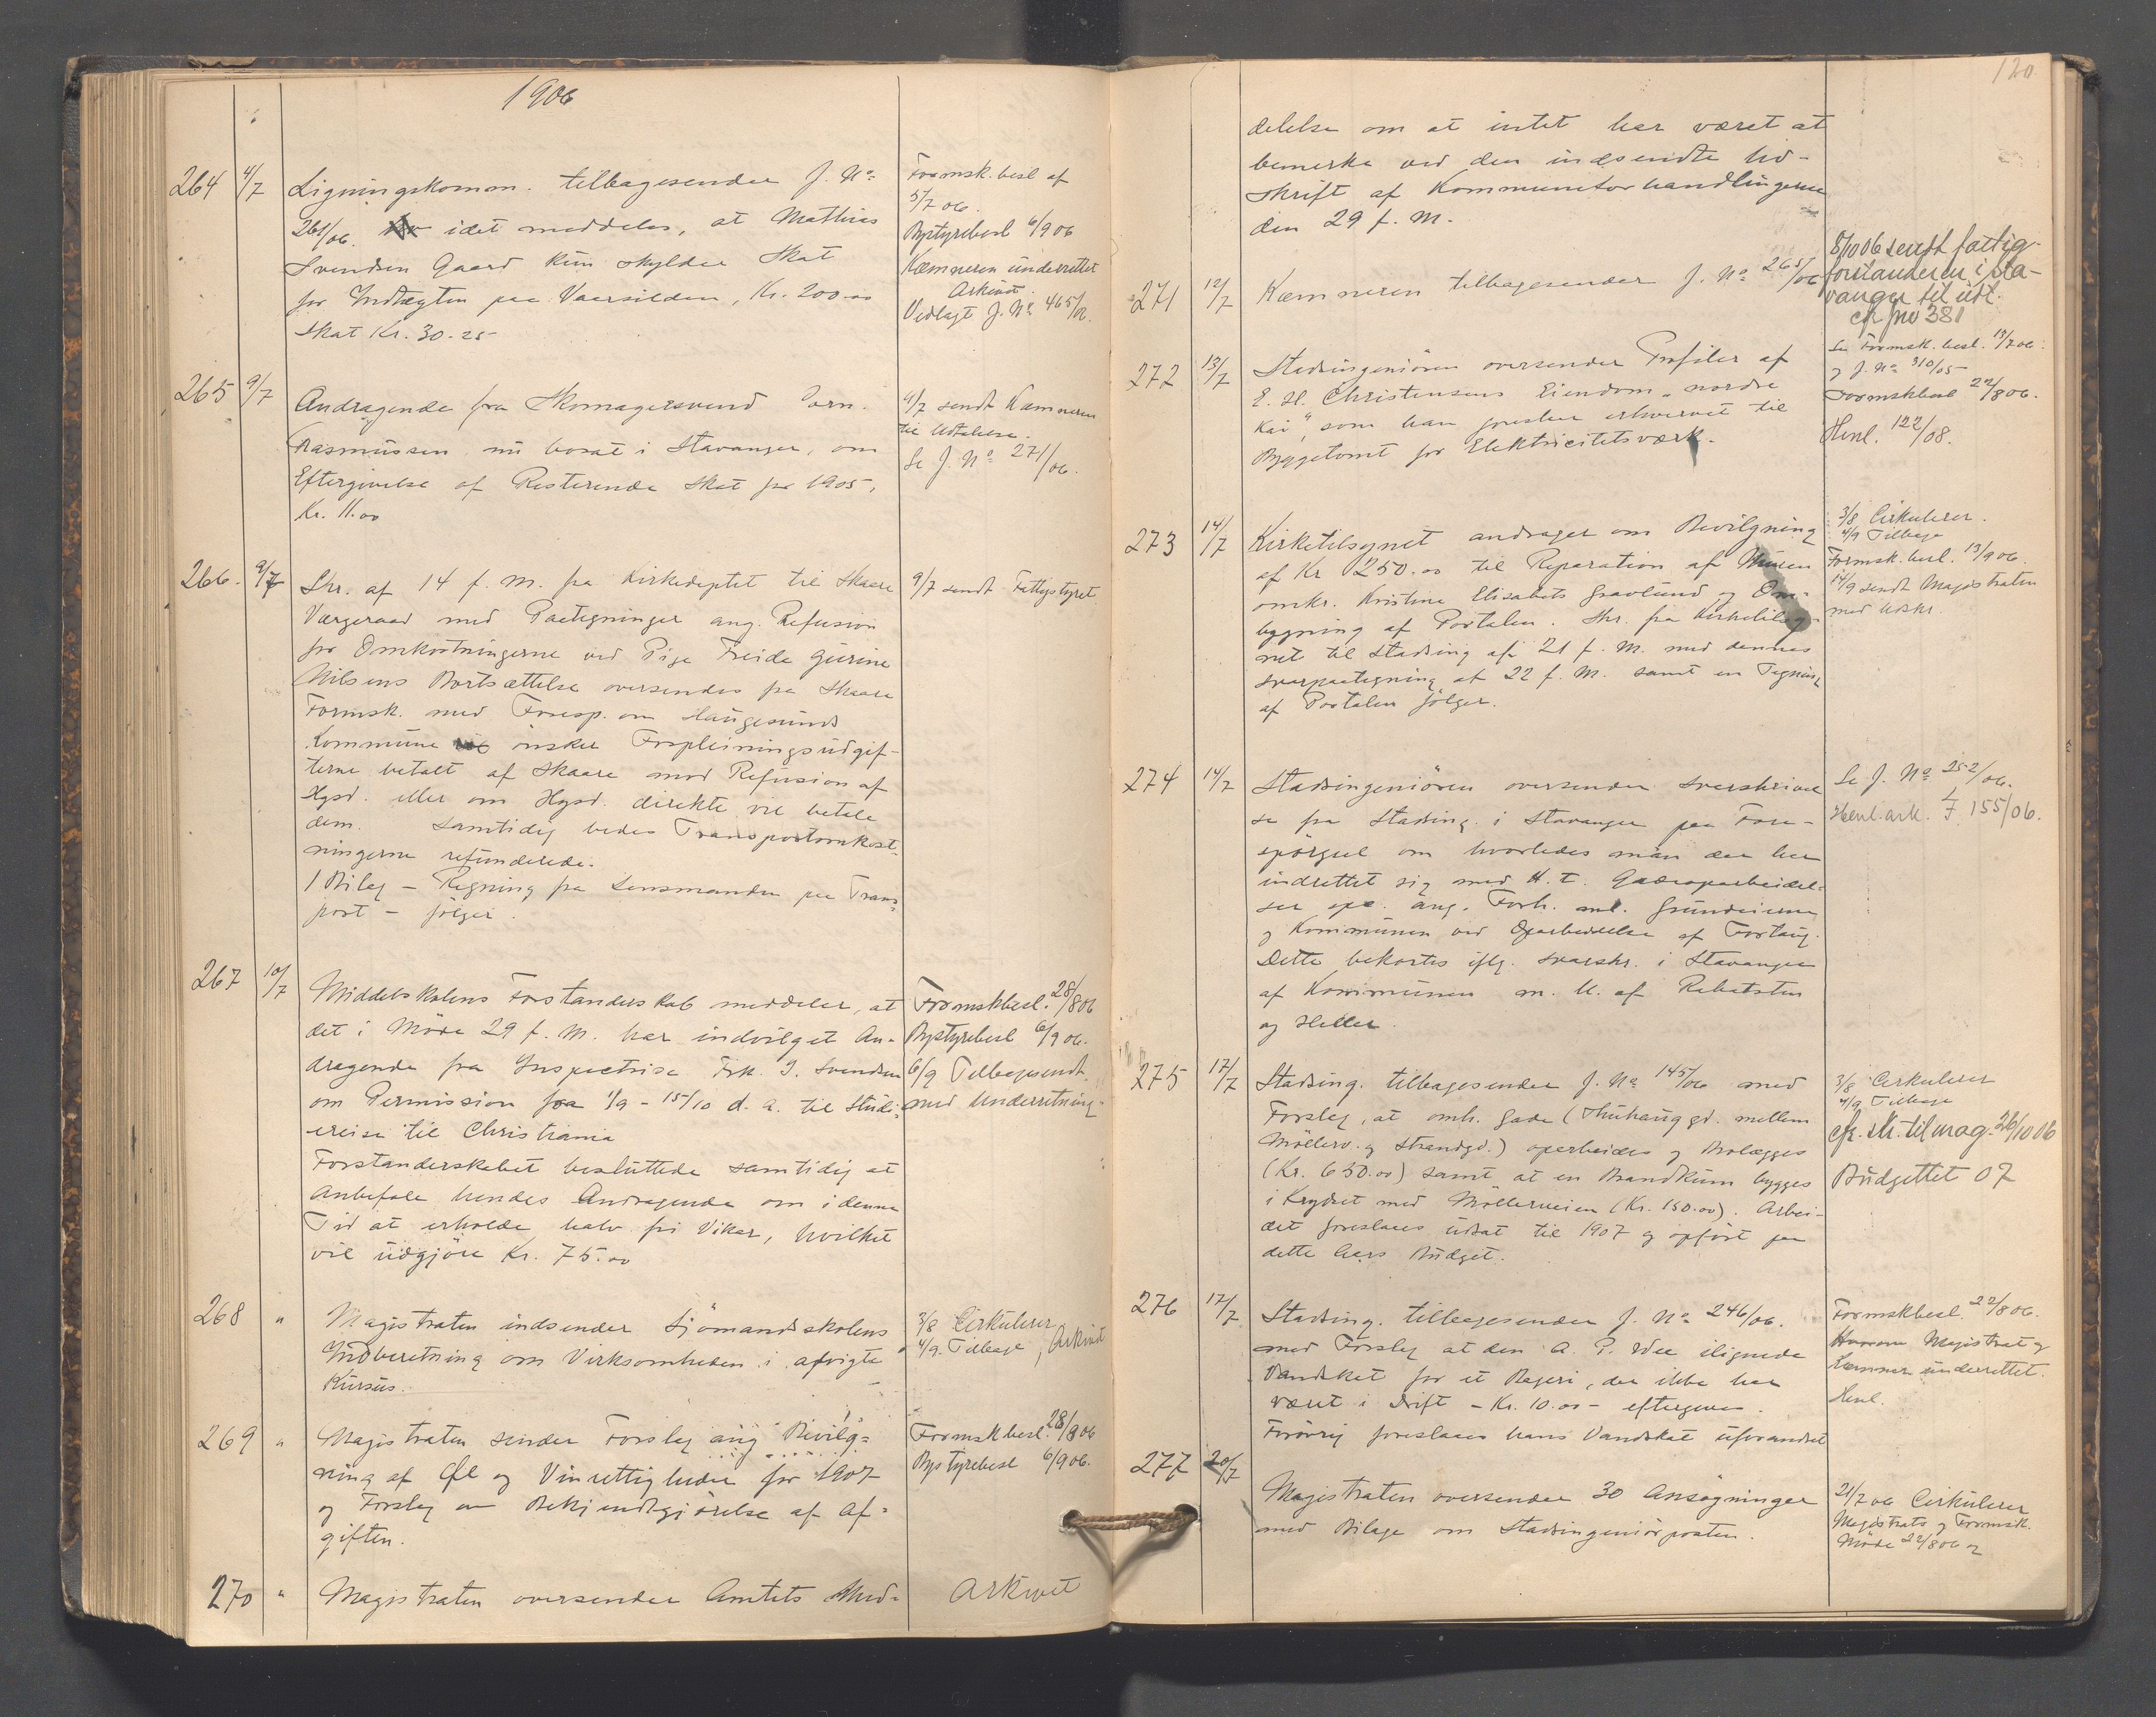 1906
264 4/7 Ligningskomm. tilbagesender J. No
261/06. idet meddeles, at Mathias
Svendsen Gaard kun skylder Skat
for Indtægten paa Vaarsilden, Kr. 200.00
Skat Kr. 30.25
Formsk.besl af
5/7 06.
Bystyrebesl 6/9 06
Kæmneren underrettet
Arkivet.
Vedlagt J. No 465/06.
265 9/7 Andragende fra Skomagersvend Corn.
Rasmussen nu bosat i Stavanger, om
Eftergivelse af Resterende Skat for 1905,
Kr. 11.00
9/7 sendt Kæmneren
til Udtalelse.
Se J. No 271/06.
266. 9/7 Skr. af 14 f. M. fra Kirkedeptet til Skaare
Værgeraad med Paategninger ang. Refusion
for Omkostningerne ved Pige Freide Gurine
Nilsens Bortsættelse oversendes fra Skaare
Formsk. med Foresp. om Haugesunds
Kommune ønsker Forpleiningsudgif-
terne betalt af Skaare mod Refusion af
Hgsd. eller om Hgsd. direkte vil betale
dem. Samtidig bedes Transportomkost-
ningerne refunderede.
1 Bilag – Regning fra Lensmanden paa Trans-
port – følger.
9/7 sendt Fattigstyret
267 10/7 Middelskolens Forstanderskab meddeler, at
det i Møde 29 f. M. har indvilget An-
dragende fra Inspectrise Frk. I. Svendsen
om Permission fra 1/9 - 15/10 d. a. til Studi-
ereise til Christiania
Forstanderskabet besluttede samtidig at
anbefale hendes Andragende om i denne
Tid at erholde halv fri Vikar, hvilket
vil udgjøre Kr. 75.00
Formskbesl. 28/8 06
Bystyrebesl 6/9 06.
6/9 Tilbagesendt
med Underretning.
268 " Magistraten indsender Sjømandsskolens
Indberetning om Virksomheden i afvigte
Kursus.
3/8 Cirkulerer
4/9. Tilbage, Arkivet
269 " Magistraten sender Forslag ang Bevilg-
ning af Øl og Vinrettigheder for 1907
og Forslag om Bekjendtgjørelse af Af-
giften.
Formskbesl. 28/8 06
Bystyrebesl 6/9 06.
270 " Magistraten oversender Amtets Med-
Arkivet
120
delelse om at intet har været at
bemerke ved den indsendte Ud-
skrift af Kommuneforhandlingerne
den 29 f. M.
271 12/7 Kæmneren tilbagesender J. No 265/06
8/10 06 sendt fattig-
forstanderen i Sta-
vanger til udt.
cfr jno 381
272 13/7 Stadsingeniøren oversender Profiler af
E. H. Christensens Eiendom „nordre
Kai", som han foreslaar erhvervet til
Byggetomt for Elektricitetsværk.
Se Formsk. besl. 13/7 06.
og J. No 310/05
Formskbesl 22/8 06.
Henl. 122/08.
273 14/7 Kirketilsynet andrager om Bevilgning
af Kr 1250.00 til Reparation af Muren
omkr. Kristine Elisabets Gravlund og Om-
bygning af Portalen. Skr. fra Kirketilsy-
net til Stadsing af 21 f. M. med dennes
svarpaategning af 22 f. M. samt en Tegning
af Portalen følger.
3/8 Cirkulerer.
4/9 Tilbage
Formsk.besl. 13/9 06.
14/9 sendt Magistraten
med Udskr.
274 14/7 Stadsingeniøren oversender svarskrivel
se fra Stadsing. i Stavanger paa Fore-
spørgsel om hvorledes man der har
indrettet sig med H. t. Gadeoparbeidel-
ser spc. ang. Forh. ml. Grundeierne
og Kommunen ved Oparbeidelse af Fortaug.
Dette bekostes iflg. svarskr. i Stavanger
af Kommunen m. U. af Rabatsten
og Heller.
Se J. No 252/06.
Henl. ark. J. 155/06.
275 17/7 Stadsing. tilbagesender J. No 145/06 med
Forslag, at omh. Gade (Thuhauggd. mellem
Møllerv. og Strandgd.) oparbeides og brolægges
(Kr. 650.00) samt at en Brandkum bygges
i Krydset med Mølleveien (Kr. 150.00). Arbei-
det foreslaaes udsat til 1907 og opført paa
dette Aars Budget.
3/8 Cirkulerer
4/9 Tilbage
cfr. skr. til mag. 26/10 06
Budgettet 07
276 17/7 Stadsing. tilbagesender J. No 246/06.
med Forslag at den A. P. Wee ilignede
Vandskat for et Bageri, der ikke har
været i Drift – Kr. 10.00 – eftergives.
Forøvrig foreslaaes hans Vandskat uforandret
Formskbesl. 22/8 06.
Magistrat og
Kæmner underrettet.
Henl.
277 20/7 Magistraten oversender 30 Ansøgninger
med Bilage om Stadsingeniørposten.
21/7 06 Cirkulerer
Magistrats og Formsk.
Møde 22/8 06